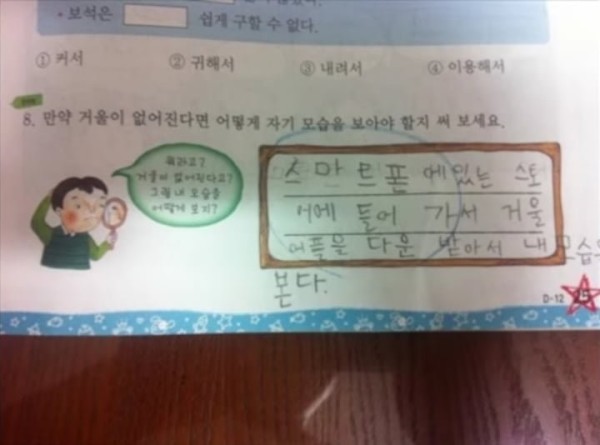 • 보석은 쉽게 구할 수 없다.
① 커서 ② 귀해서 ③ 내려서 ④ 이용해서
8. 만약 거울이 없어진다면 어떻게 자기 모습을 보아야 할지 써 보세요.
뭐라고?
거울이 없어진다고?
그럼 내 모습을
어떻게 보지?
스마트폰에 있는 스토
어에 들어 가서 거울
어플을 다운 받아서 내 모습을
본다.
D-12